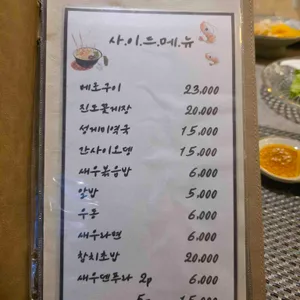 사.이.드.메.뉴
메로구이 23.000
진모꽃게장 20.000
성게미역국 15.000
간사이오뎅 15.000
새우볶음밥 6.000
알밥 5.000
우동 6.000
새우라면 6.000
참치초밥 20.000
새우덴푸라 2p 6.000
5p 15.000